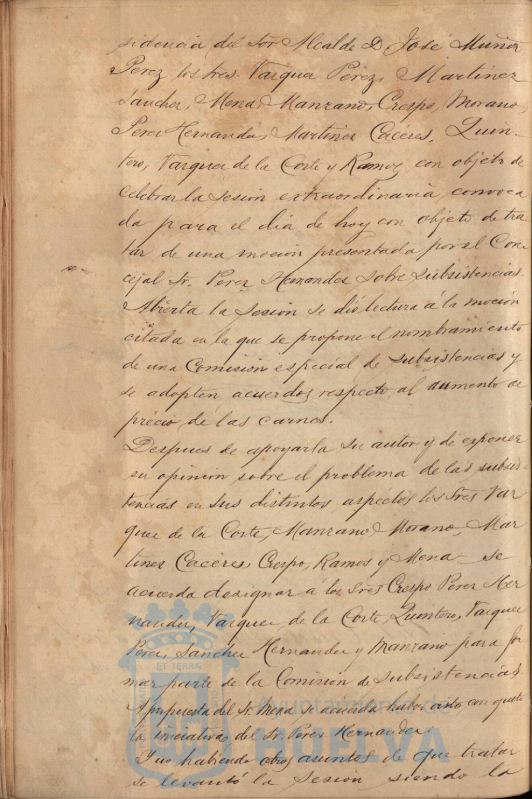 sidencia del Sor Alcalde D. José Muñoz
Perez los Sres. Vazquez Perez, Martinez
Sanchez, Mena, Manzano, Crespo, Morano,
Perez Hernandez, Martinez Cáceres, Quin-
tero, Vazquez de la Corte y Ramos, con objeto de
celebrar la sesión extraordinaria, convoca
da para el dia de hoy con objeto de tra
tar de una moción presentada por el Con-
cejal Sr. Perez Hernandez sobre subsistencias.
Abierta la sesión se dió lectura a la moción
citada en la que se propone el nombramiento
de una Comisión especial de subsistencias y
se adopten acuerdos respecto al aumento de
precio de las carnes.
Despues de apoyarla su autor y de exponer
su opinion sobre el problema de las subsis
tencias en sus distintos aspectos los Sres Vaz
quez de la Corte, Manzano, Morano, Mar-
tinez Cáceres, Crespo, Ramos y Mena se
acuerda designar á los Sres Crespo, Perez Her
nandez, Vazquez de la Corte, Quintero, Vazquez
Perez, Sanchez Hernandez y Manzano para for
mar parte de la Comisión de subsistencias.
A propuesta del Sr. Mena se acuerda haber visto con gusto
la iniciativa del Sr. Perez Hernandez.
Y no habiendo otros asuntos de que tratar
se levantó la sesión siendo la
HUELVA